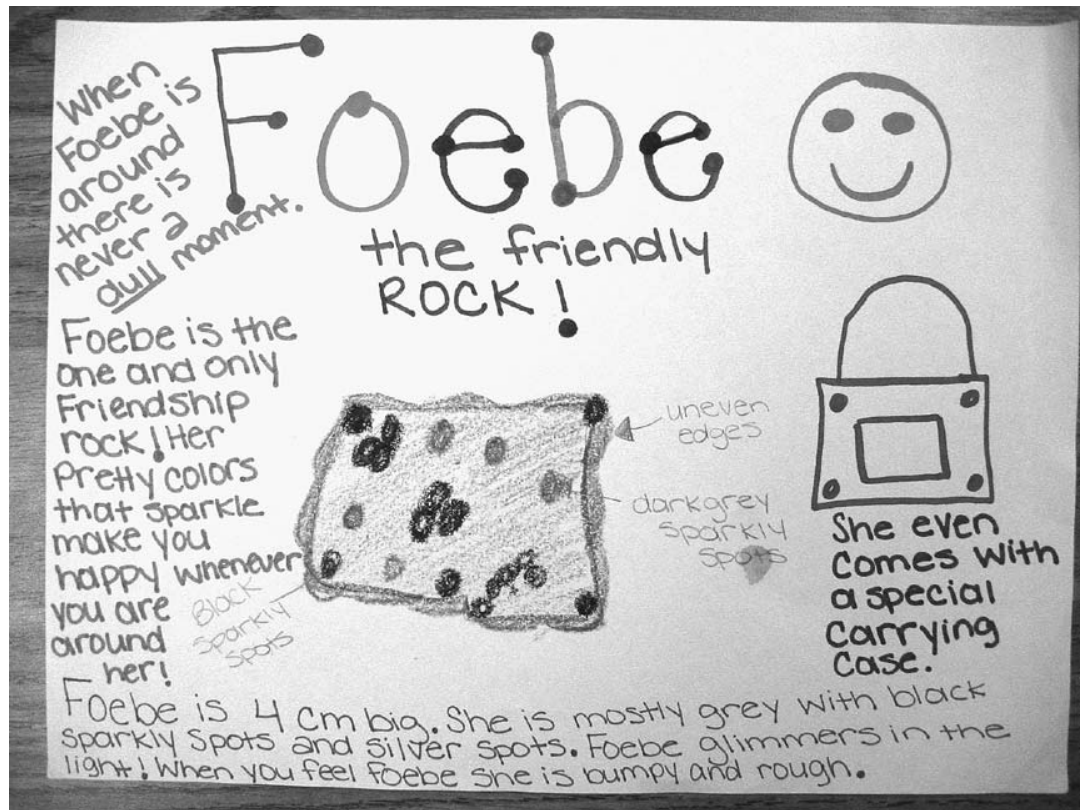 Foebe
the friendly
ROCK!
When
Foebe is
around
there is
never a
dull moment.
Foebe is the
one and only
Friendship
rock! Her
Pretty colors
that sparkle
make you
happy whenever
you are
around
her!
uneven
edges
darkgrey
Sparkly
Spots
Black
Sparkly
Spots
She even
Comes with
a special
Carrying
Case.
Foebe is 4 cm big. She is mostly grey with black
Sparkly Spots and silver spots. Foebe glimmers in the
light! When you feel foebe she is bumpy and rough.